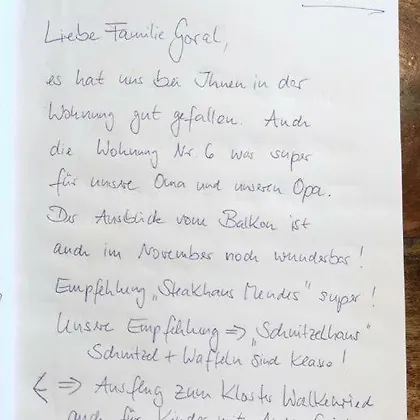 Liebe Familie Goral,
es hat uns bei Ihnen in der
Wohnung gut gefallen. Auch
die Wohnung Nr. 6 war super
für unsere Oma und unseren Opa.
Der Ausblick vom Balkon ist
auch im November noch wunderbar!
Empfehlung „Steakhaus Mendes" super!
Unsere Empfehlung => „Schnitzelhaus"
Schnitzel + Waffeln sind klasse!
<- => Ausflug zum Kloster Walkenried
auch für Kinder mit